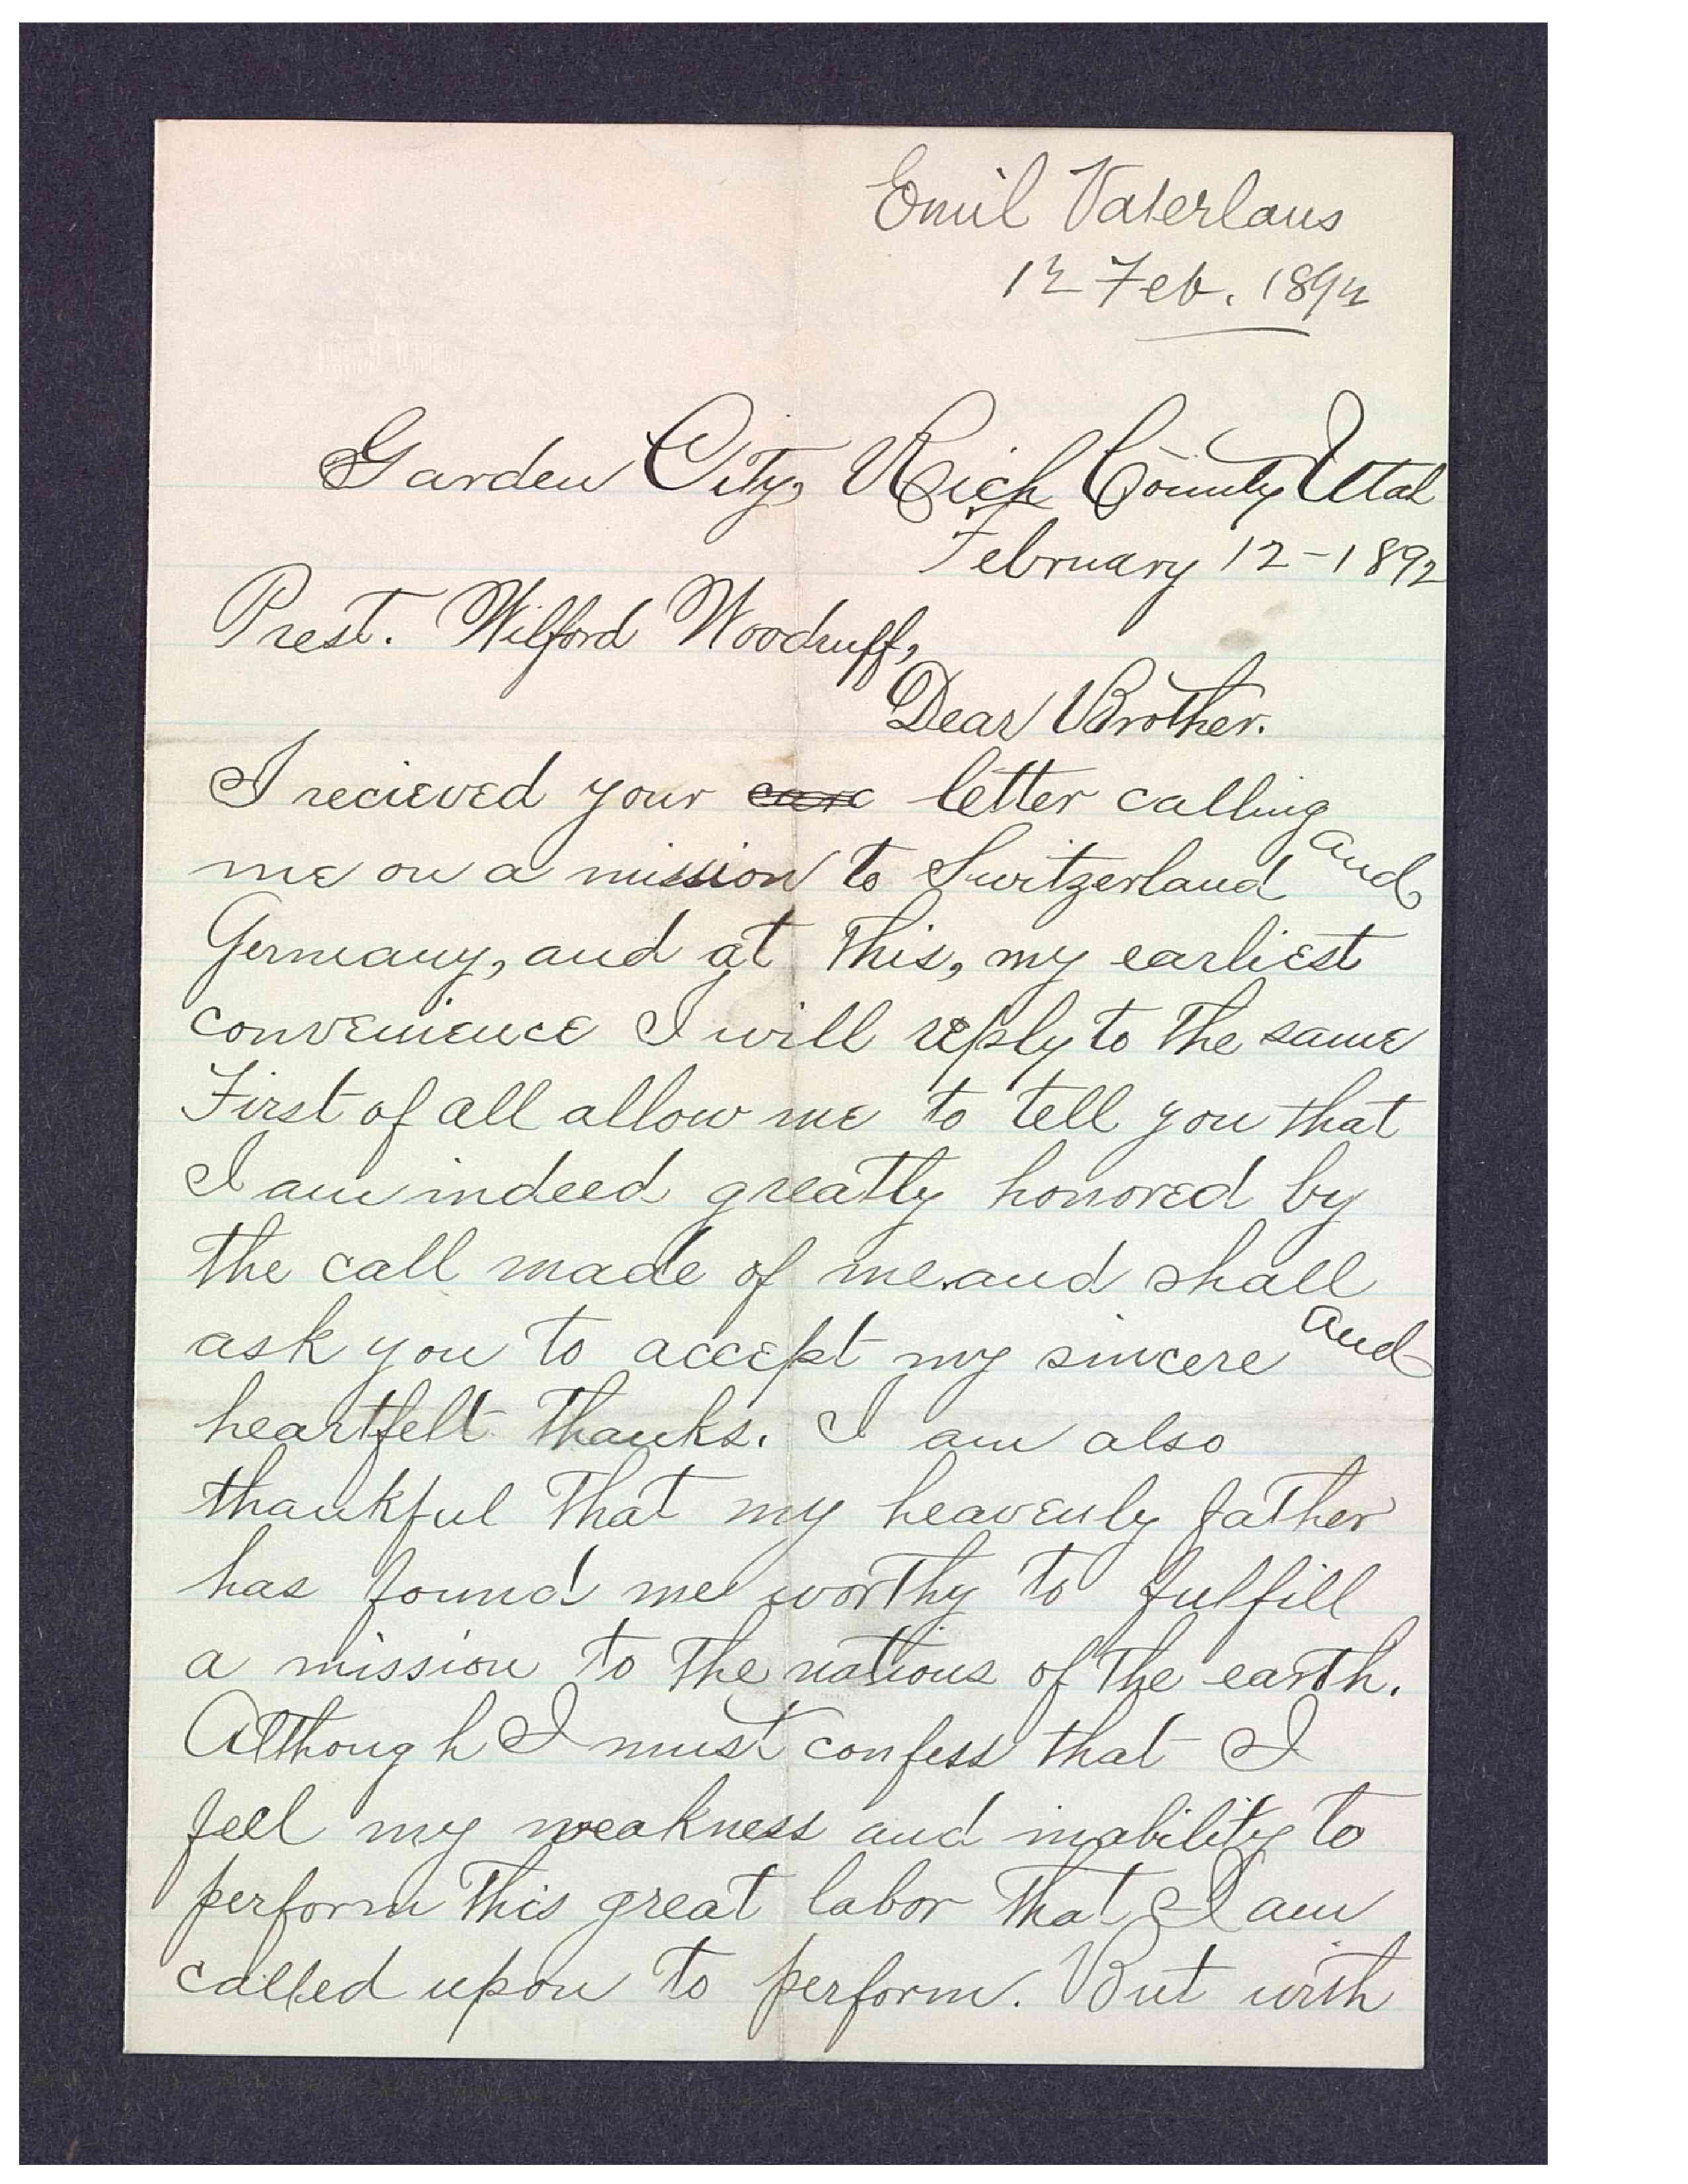 Emil Vaterlaus
12 Feb. 1892
Garden City, Rich County Utah
February 12-1892
Prest. Wilford Woodruff,
Dear Brother.
I recieved your letter calling
me on a mission to Switzerland and
Germany, and at this, my earliest
convenience I will reply to the same
First of all allow me to tell you that
I am indeed greatly honored by
the call made of me. and shall
ask you to accept my sincere and
heartfelt thanks. I am also
thankful that my heavenly father
has found me worthy to fulfill
a mission to the nations of the earth.
Although I must confess that I
feel my weakness and inability to
perform this great labor that I am
called upon to perform. But with